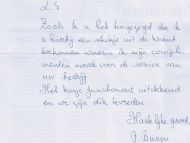 L.S
Zoals ik u het toegezegd doe ik
u hierbij een stukje uit de krant
toekomen waarin ik mijn compli-
menten maak voor de service van
uw bedrijf.
Het kasje functioneert uitstekend
en we zijn dik tevreden.
Hartelijke groet,